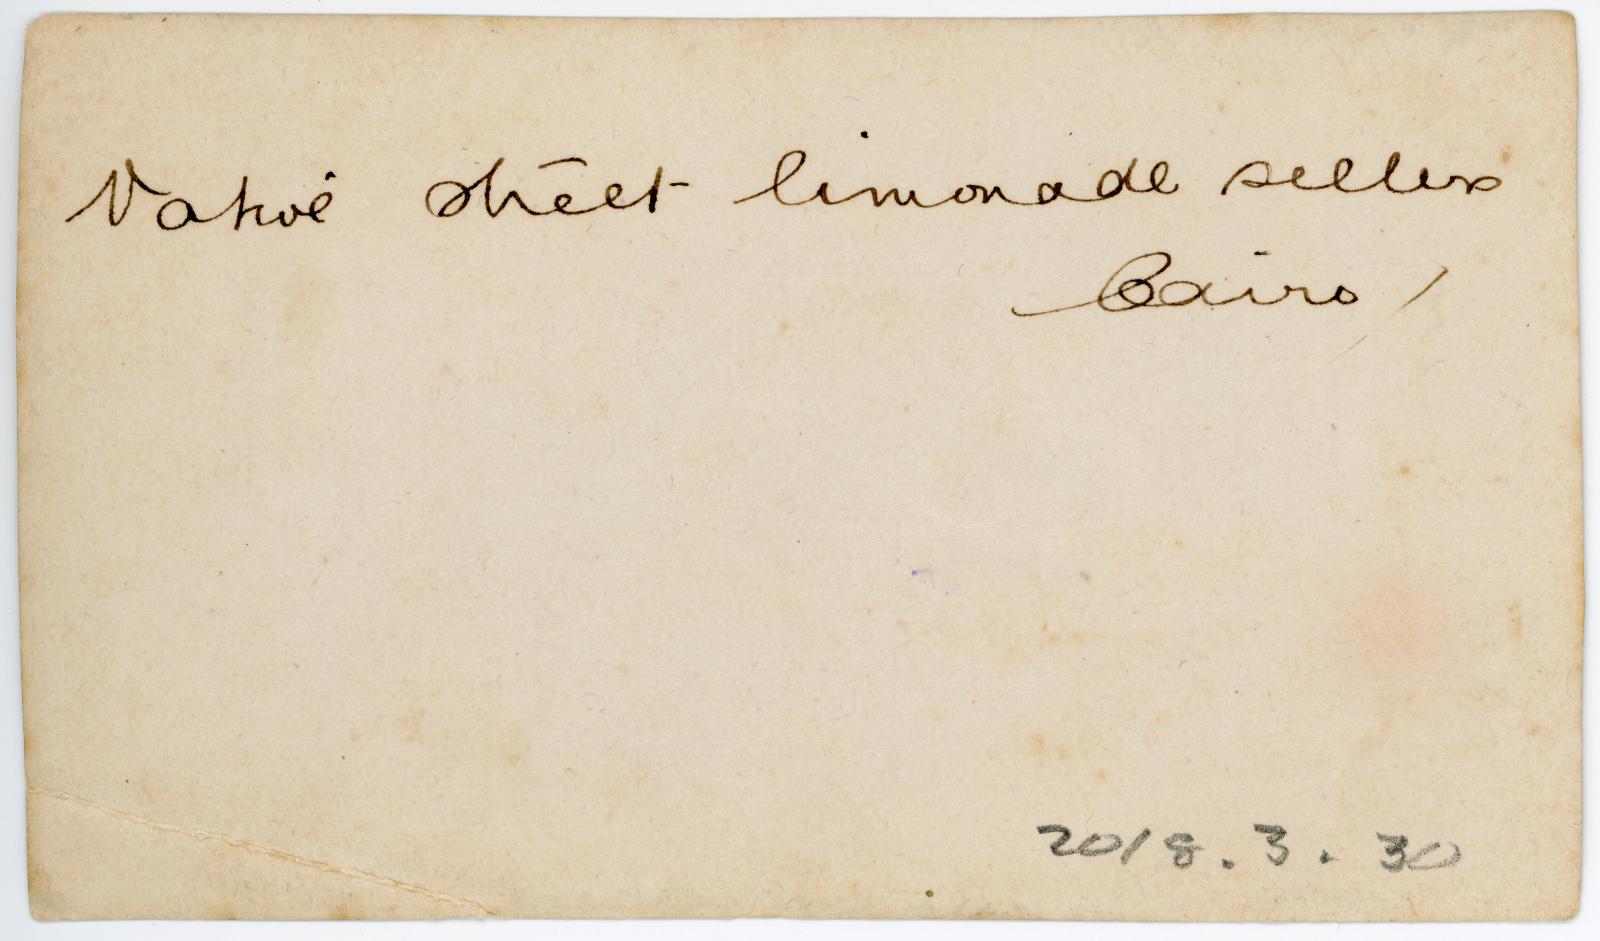 Native street limonade sellers
Cairo
2018.3.30